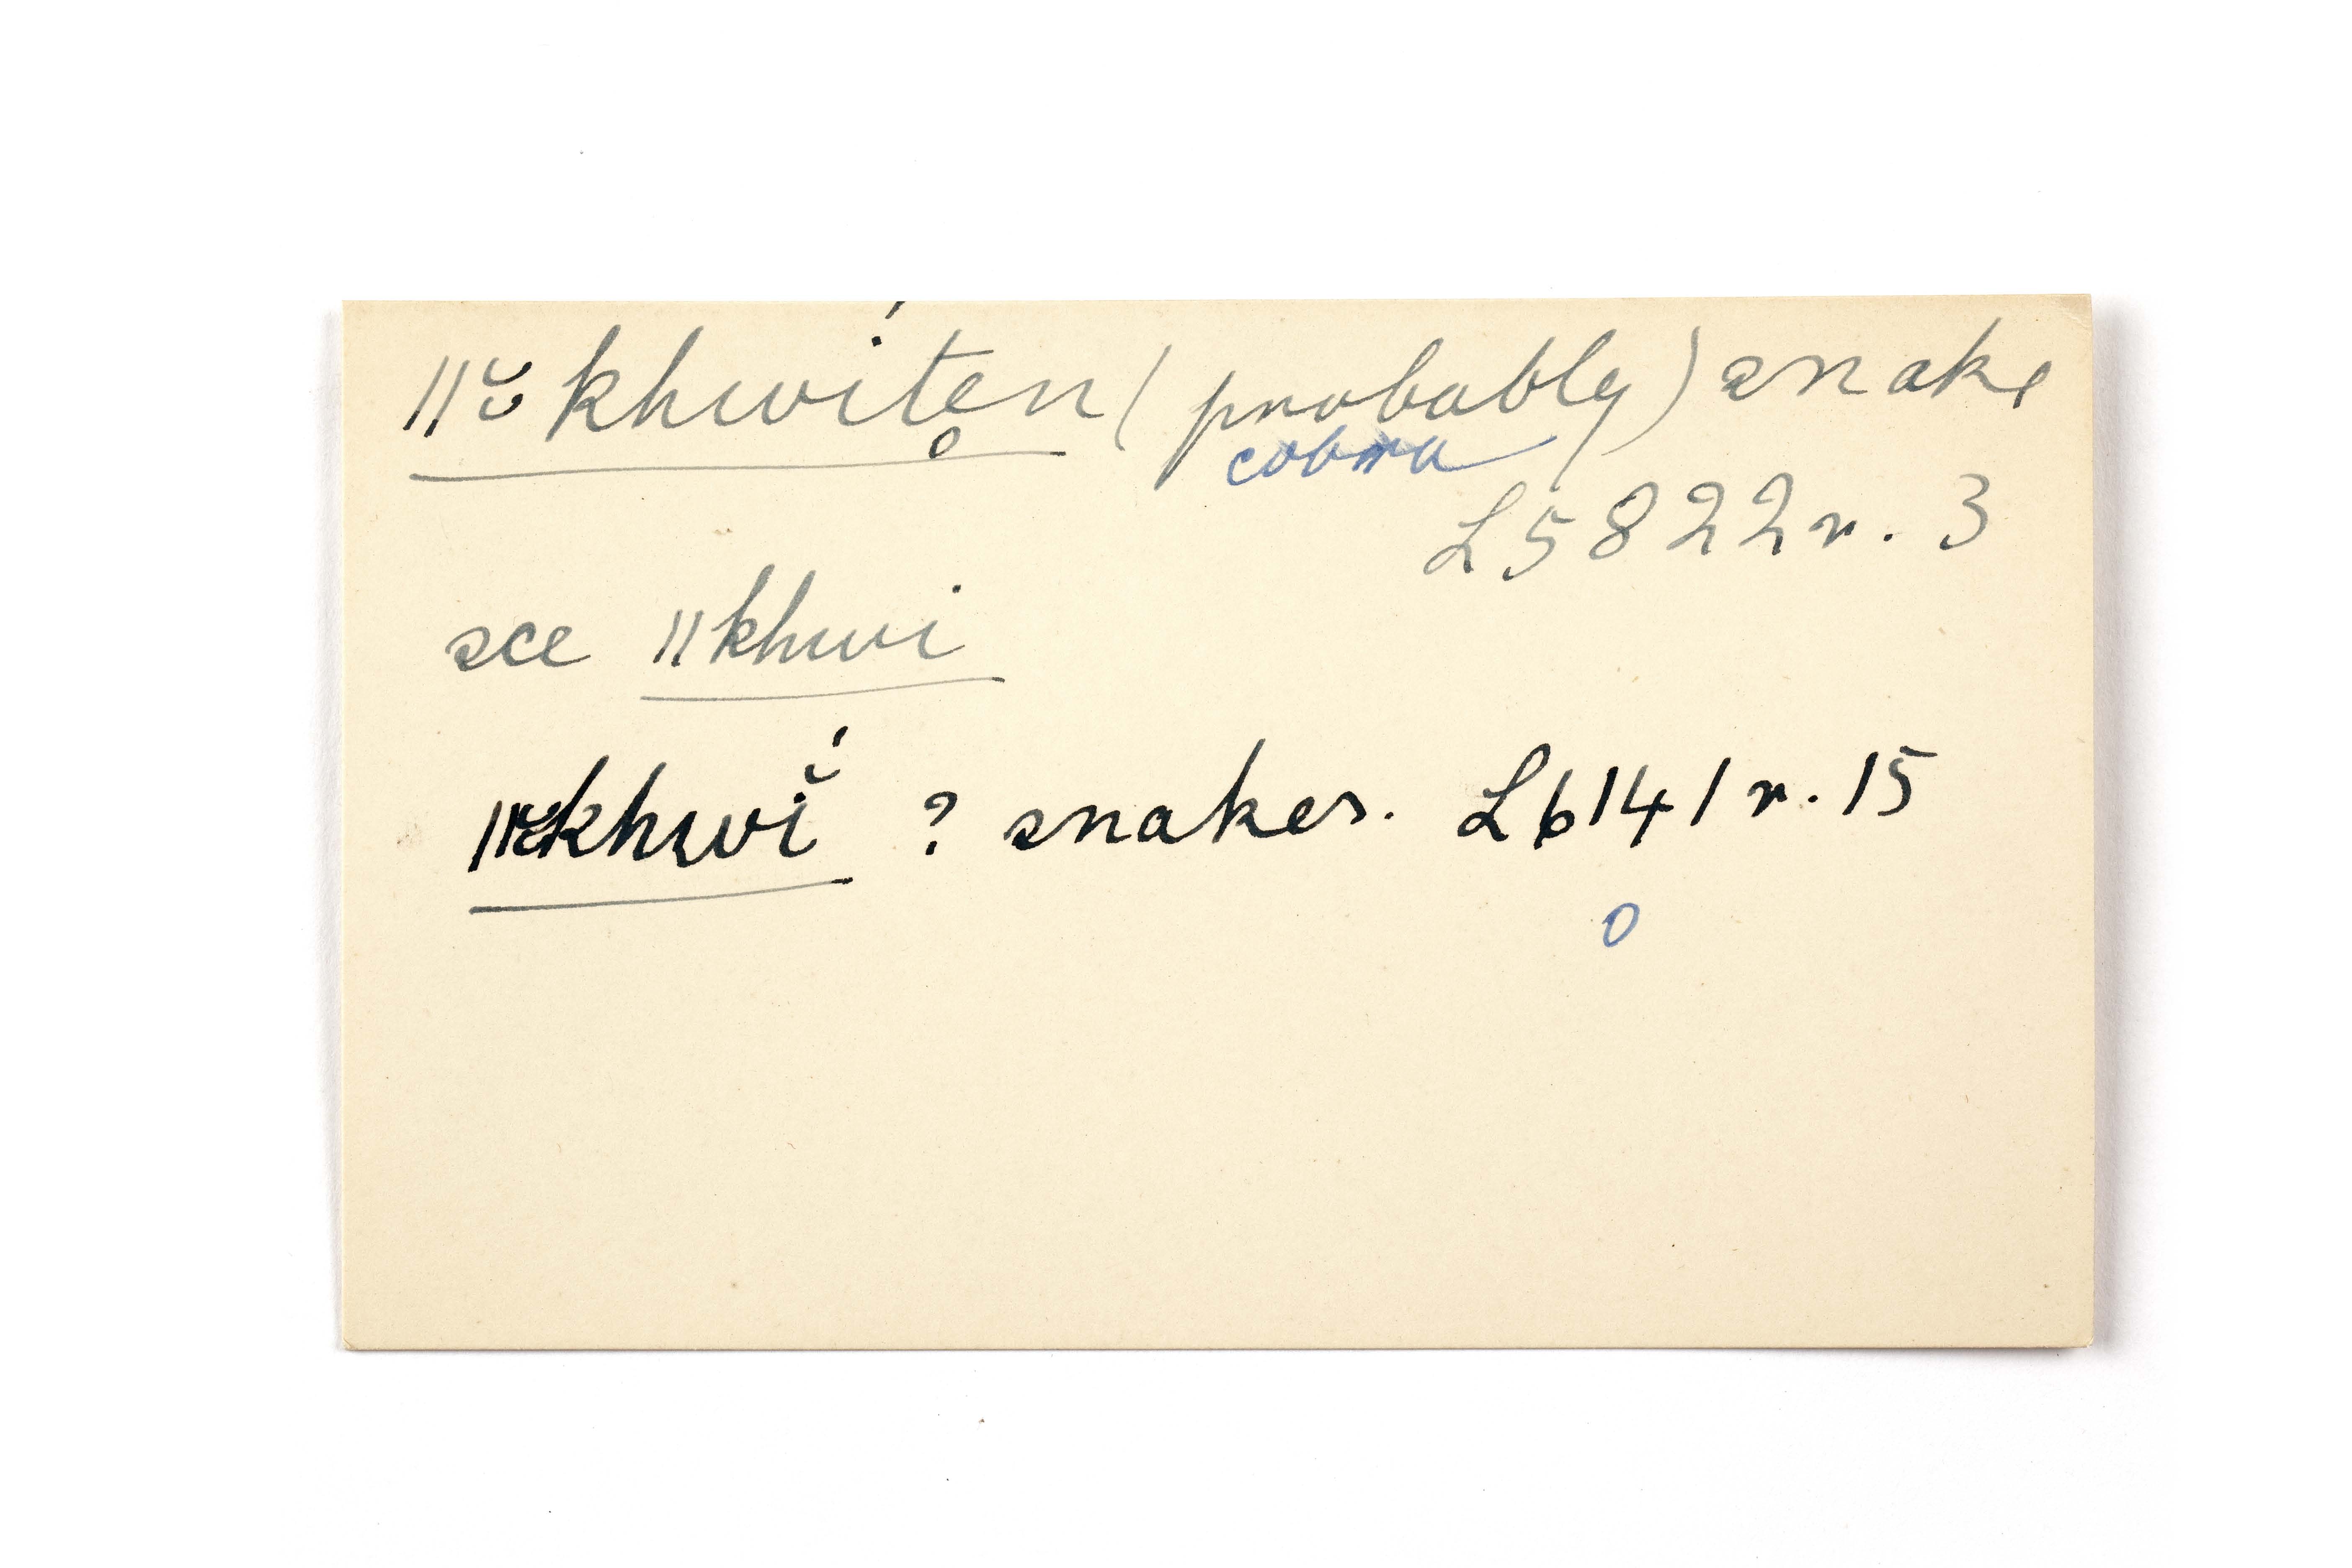 ǁkhwítẹn (probably) snake
cobra
L5822r. 3
see ǁkhwi
ǁkhwĭ́ ? snakes. L6141r. 15
0